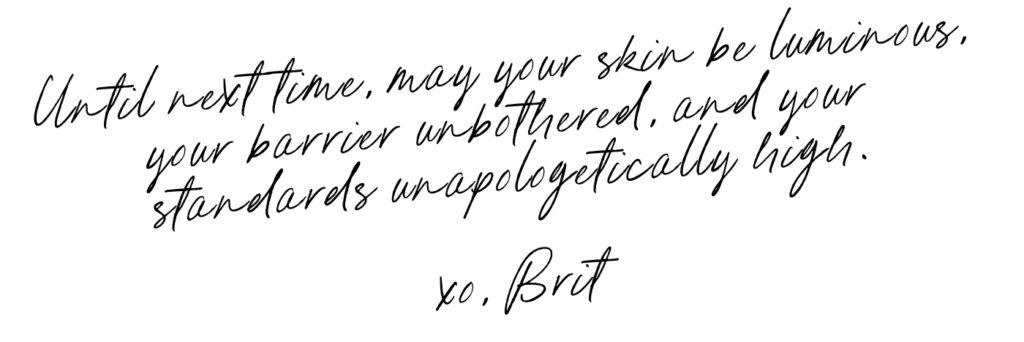 Until next time, may your skin be luminous,
your barrier unbothered, and your
standards unapologetically high.
xo, Brit